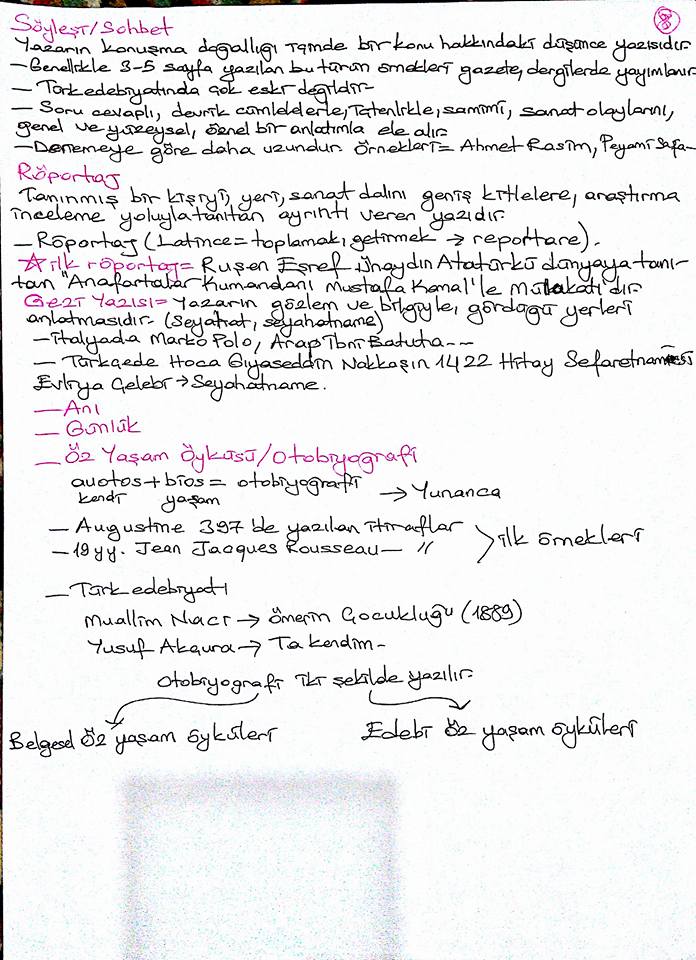 8
Söyleşi/Sohbet
Yazarın konuşma doğallığı içinde bir konu hakkındaki düşünce yazısıdır.
– Genellikle 3-5 sayfa yazılan bu türün örnekleri gazete, dergilerde yayımlanır.
– Türk edebiyatında çok eski değildir.
– Soru cevaplı, devrik cümlelerle, içtenlikle, samimi, sanat olaylarını,
genel ve yüzeysel, öznel bir anlatımla ele alır.
– Denemeye göre daha uzundur. Örnekleri= Ahmet Rasim, Peyami Safa–
Röportaj
Tanınmış bir kişiyi, yeri, sanat dalını geniş kitlelere, araştırma
inceleme yoluyla tanıtan ayrıntı veren yazıdır.
– Röportaj (Latince= toplamak, getirmek → reportare).
☆ ilk röportaj= Ruşen Eşref Ünaydın Atatürkü dünyaya tanı-
tan "Anafartalar Kumandanı Mustafa Kemal'le Mülakatı"dır.
Gezi Yazısı= Yazarın gözlem ve bilgiyle, gördüğü yerleri
anlatmasıdır. (Seyahat, seyahatname)
– İtalyada Marko Polo, Arap İbni Batuta--
– Türkçede Hoca Gıyaseddin Nakkaşın 1422 Hıtay Sefaretnamesi
Evliya Çelebi → Seyahatname.
– Anı
– Günlük
– Öz Yaşam Öyküsü/Otobiyografi
auotos + bios = otobiyografi
kendi yaşam → Yunanca
– Augustine 397'de yazılan itiraflar
– 19 yy. Jean Jacques Rousseau – "
ilk örnekleri
– Türk edebiyatı
Muallim Naci → Ömerin Çocukluğu (1889)
Yusuf Akçura → Ta kendim–
Otobiyografi iki şekilde yazılır.
Belgesel Öz yaşam öyküleri Edebi Öz yaşam öyküleri